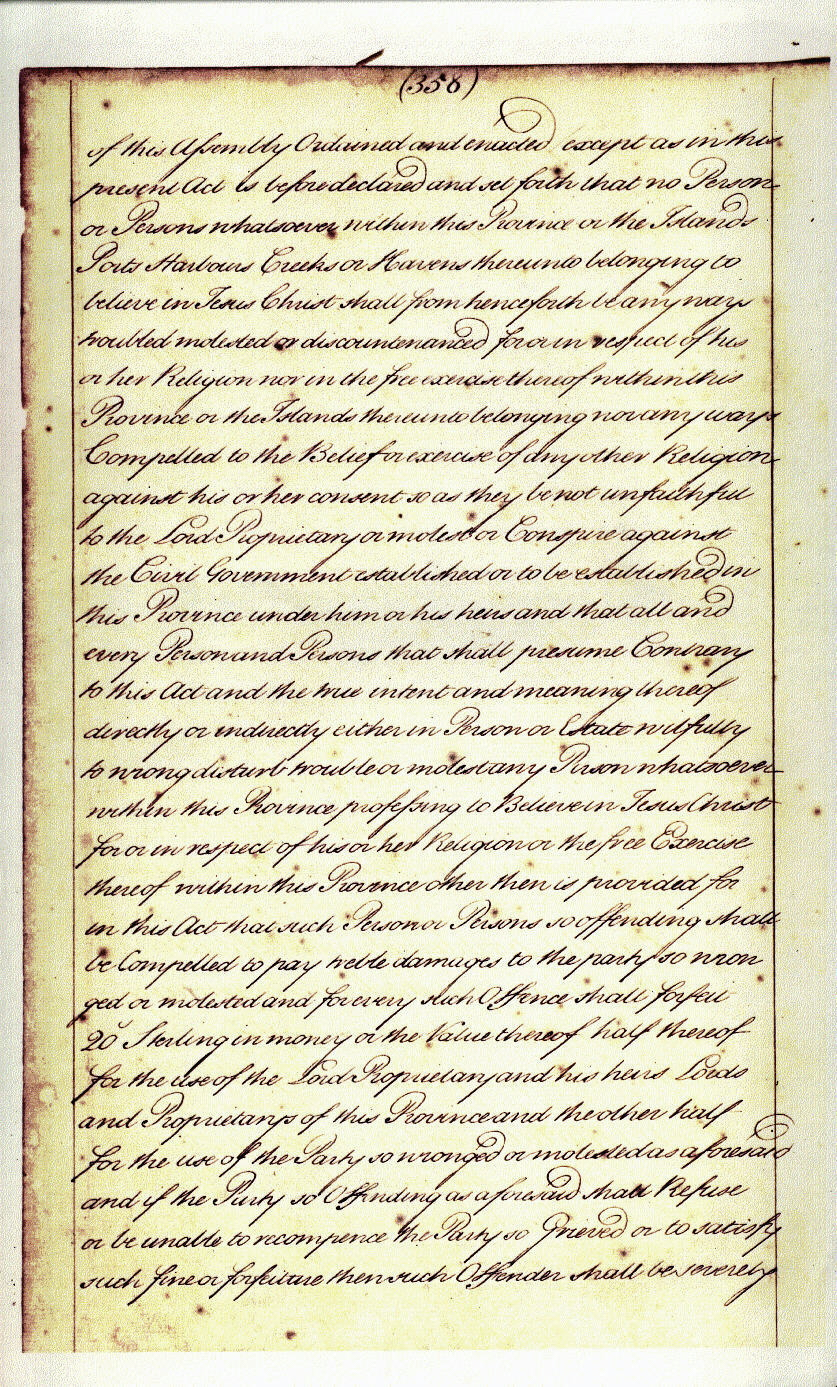 (358)
of this Assembly Ordained and enacted except as in this
present Act is before declared and set forth that no Person
or Persons whatsoever within this Province or the Islands
Ports Harbours Creeks or Havens thereunto belonging to
believe in Jesus Christ shall from henceforth be any ways
troubled molested or discountenanced for or in respect of his
or her Religion nor in the free exercise thereof within this
Province or the Islands thereunto belonging nor any ways
Compelled to the Belief or exercise of any other Religion
against his or her consent so as they be not unfaithful
to the Lord Proprietary or molest or Conspire against
the Civil Government established or to be established in
this Province under him or his heirs and that all and
every Person and Persons that shall presume Contrary
to this Act and the true intent and meaning thereof
directly or indirectly either in Person or Estate wilfully
to wrong disturb trouble or molest any Person whatsoever
within this Province professing to Believe in Jesus Christ
for or in respect of his or her Religion or the free Exercise
thereof within this Province other then is provided for
in this Act that such Person or Persons so offending shall
be Compelled to pay treble damages to the party so wron
ged or molested and for every such Offence shall forfeit
20s Sterling in money or the Value thereof half thereof
for the use of the Lord Proprietary and his heirs Lords
and Proprietarys of this Province and the other half
for the use of the Party so wronged or molested as aforesaid
and if the Party so Offending as aforesaid shall Refuse
or be unable to recompence the Party so Grieved or to satisfy
such fine or forfeiture then such Offender shall be severely